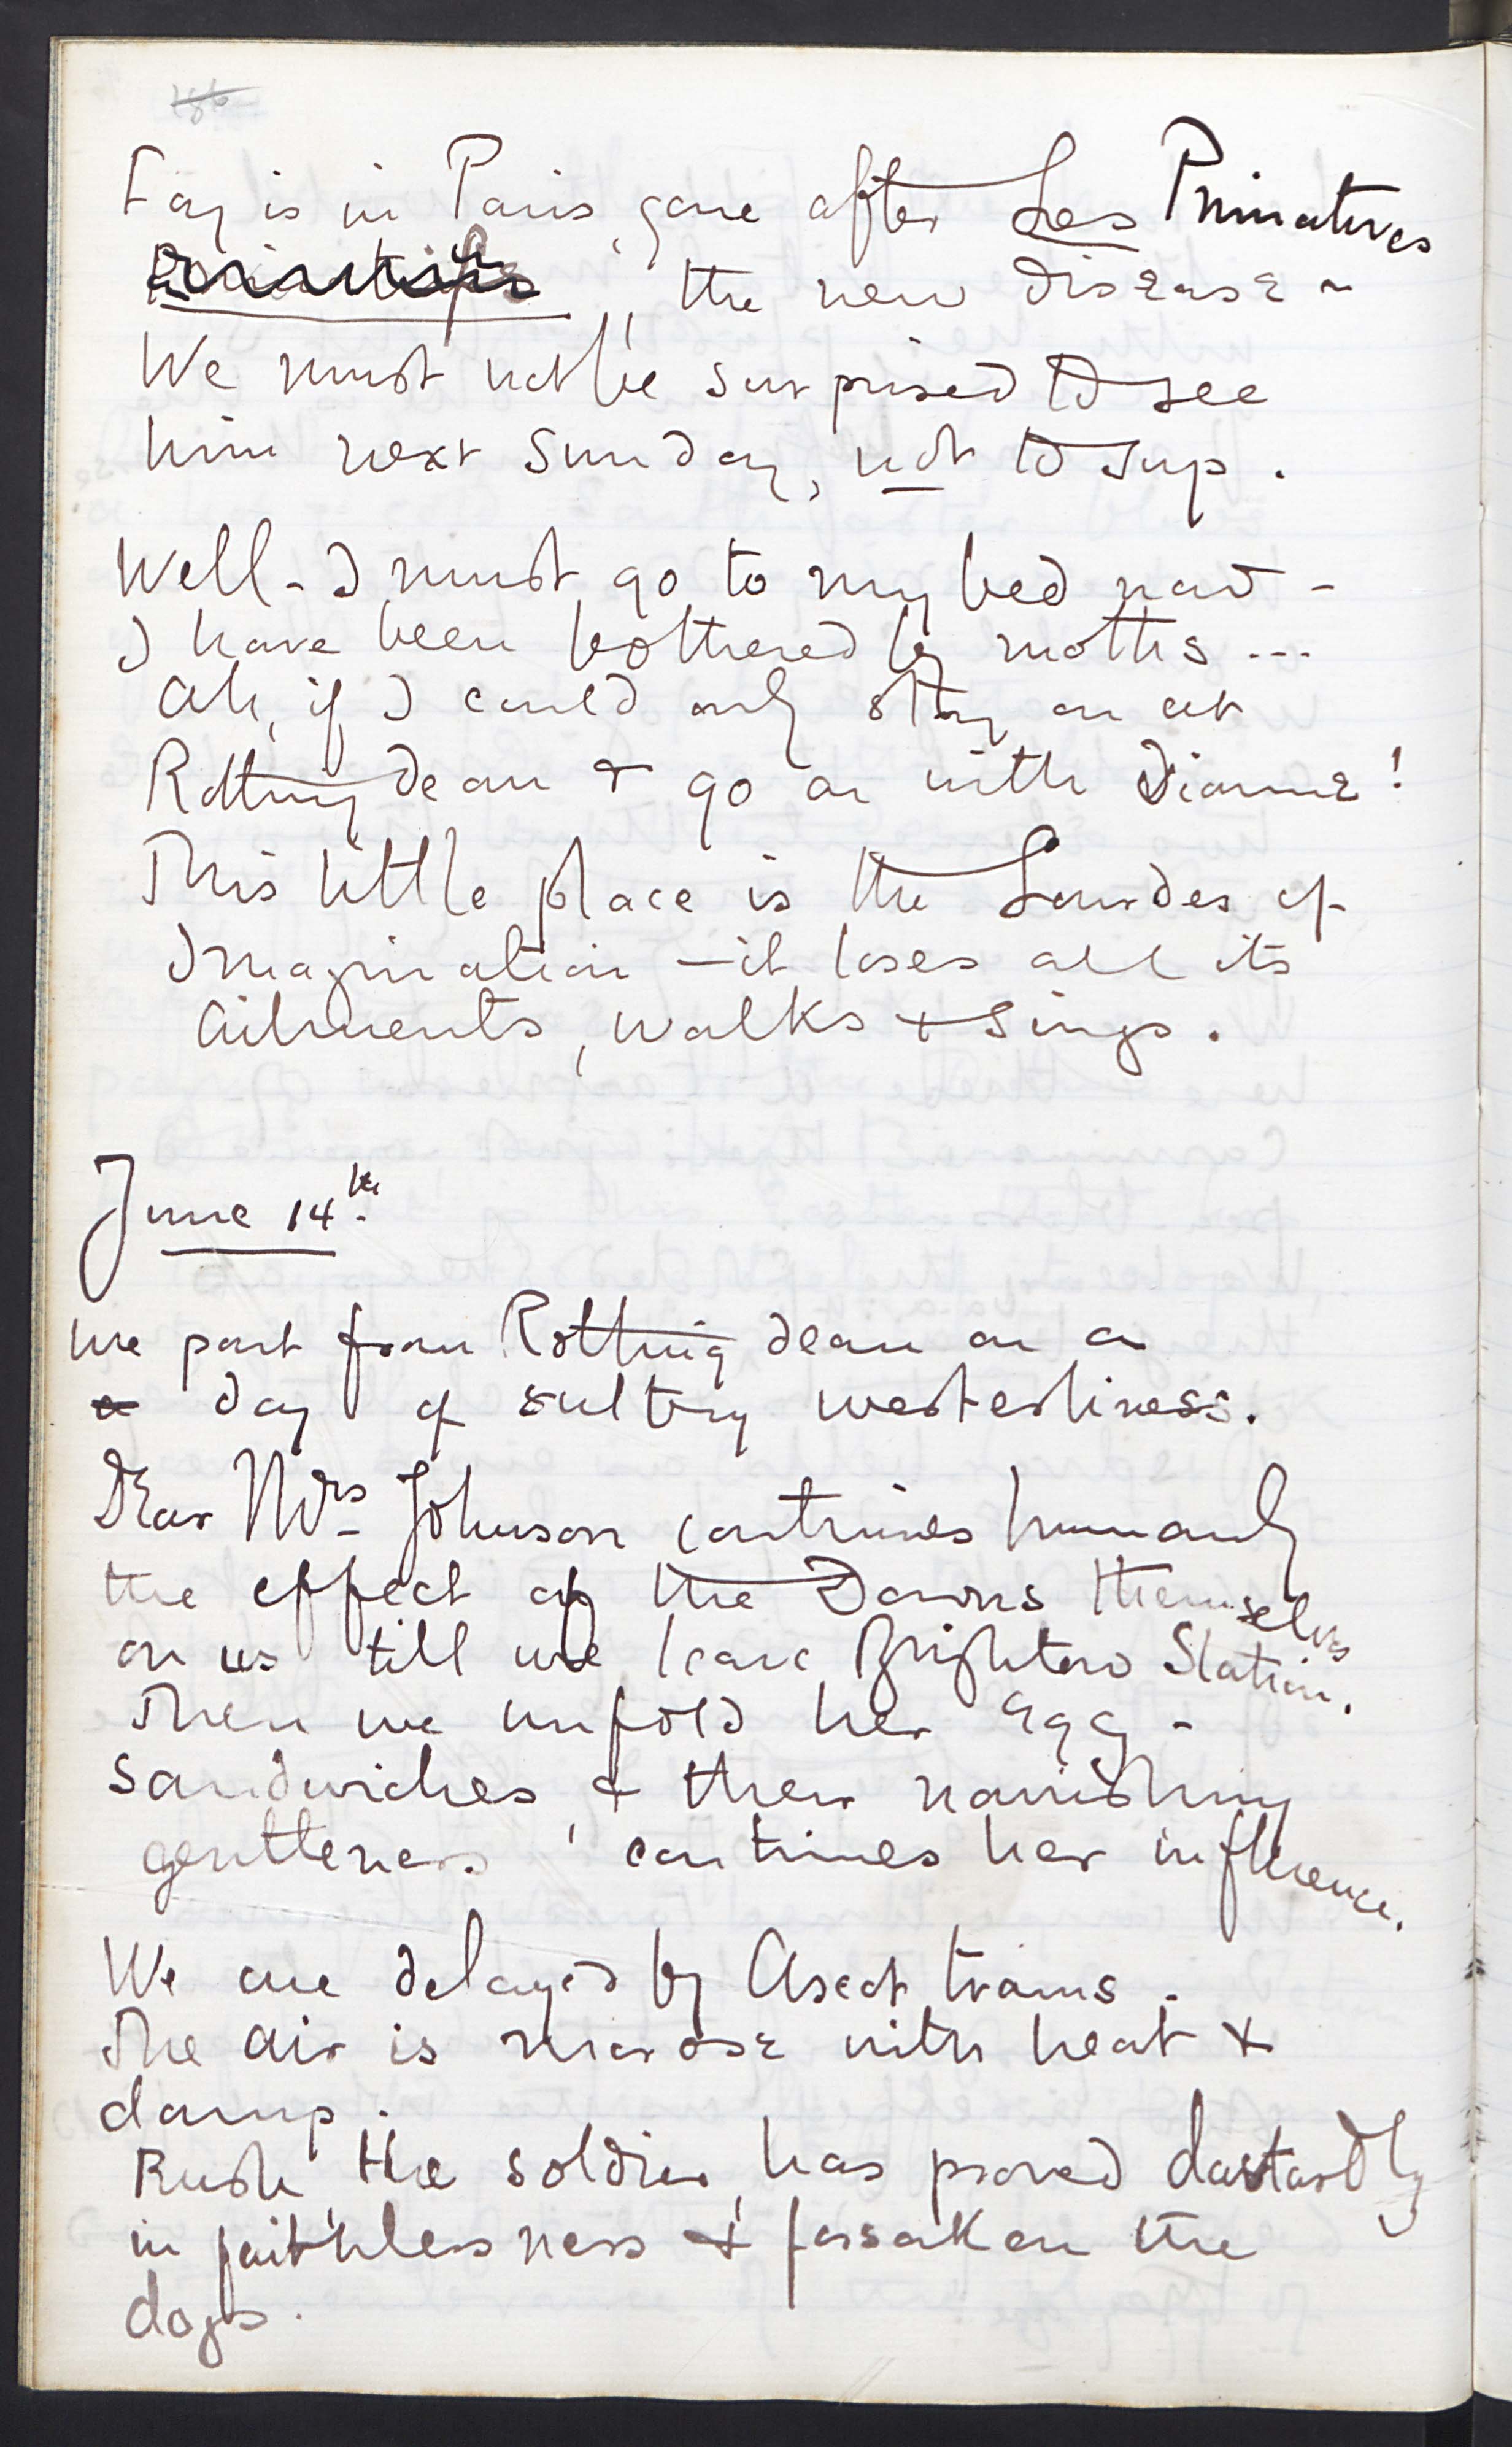 186
Fay is in Paris, gone after Les Primatives
, the new disease –
We must not be surprised to see
him next Sunday, not to sup.
Well – I must go to my bed now –
I have been bothered by moths ...
Ah, if I could only stay on at
Rottingdean & go on with Dianne!
This little place is the Lourdes of
Imagination – it loses all its
ailments, walks & sings.
June 14th.
We part from Rottingdean on a
a day of sultry westerliness.
Dear Mrs Johnson continues humanly
the effect of the Downs themselves
on us till we leave Brighton Station.
Then we unfold her egg-
sandwiches & their nourishing
gentleness continues her influence.
We are delayed by Ascot trains.
The air is morose with heat &
damp.
Rush, the soldier, has proved dastardly
in faithlessness & forsaken the
dogs.